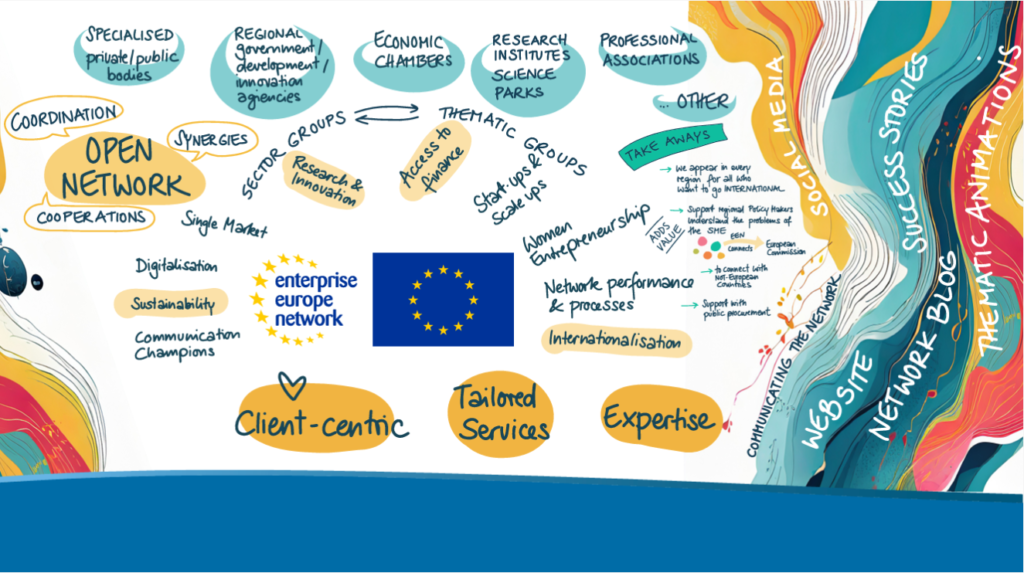 SPECIALISED
private/public
bodies
REGIONAL
government/
development/
innovation
agiencies
ECONOMIC
CHAMBERS
RESEARCH
INSTITUTES
SCIENCE
PARKS
PROFESSIONAL
ASSOCIATIONS
... OTHER
COORDINATION
SYNERGIES
OPEN
NETWORK
COOPERATIONS
SECTOR GROUPS
THEMATIC GROUPS
Single Market
Research &
Innovation
Access to
finance
Start-ups &
Scale ups
Women
Entrepreneurship
Digitalisation
Sustainability
Communication
Champions
enterprise
europe
network
Network performance
& processes
Internationalisation
TAKE AWAYS
We appear in every
region for all who
want to go INTERNATIONAL
Support regional Policy Makers
Understand the problems of
the SME
ADDS
VALUE
EEN
connects
European
Commission
to connect with
Not-European
Countries
Support with
public procurement
Client-centric
Tailored
Services
Expertise
COMMUNICATING THE NETWORK
SOCIAL MEDIA
WEBSITE
SUCCESS STORIES
NETWORK BLOG
THEMATIC ANIMATIONS